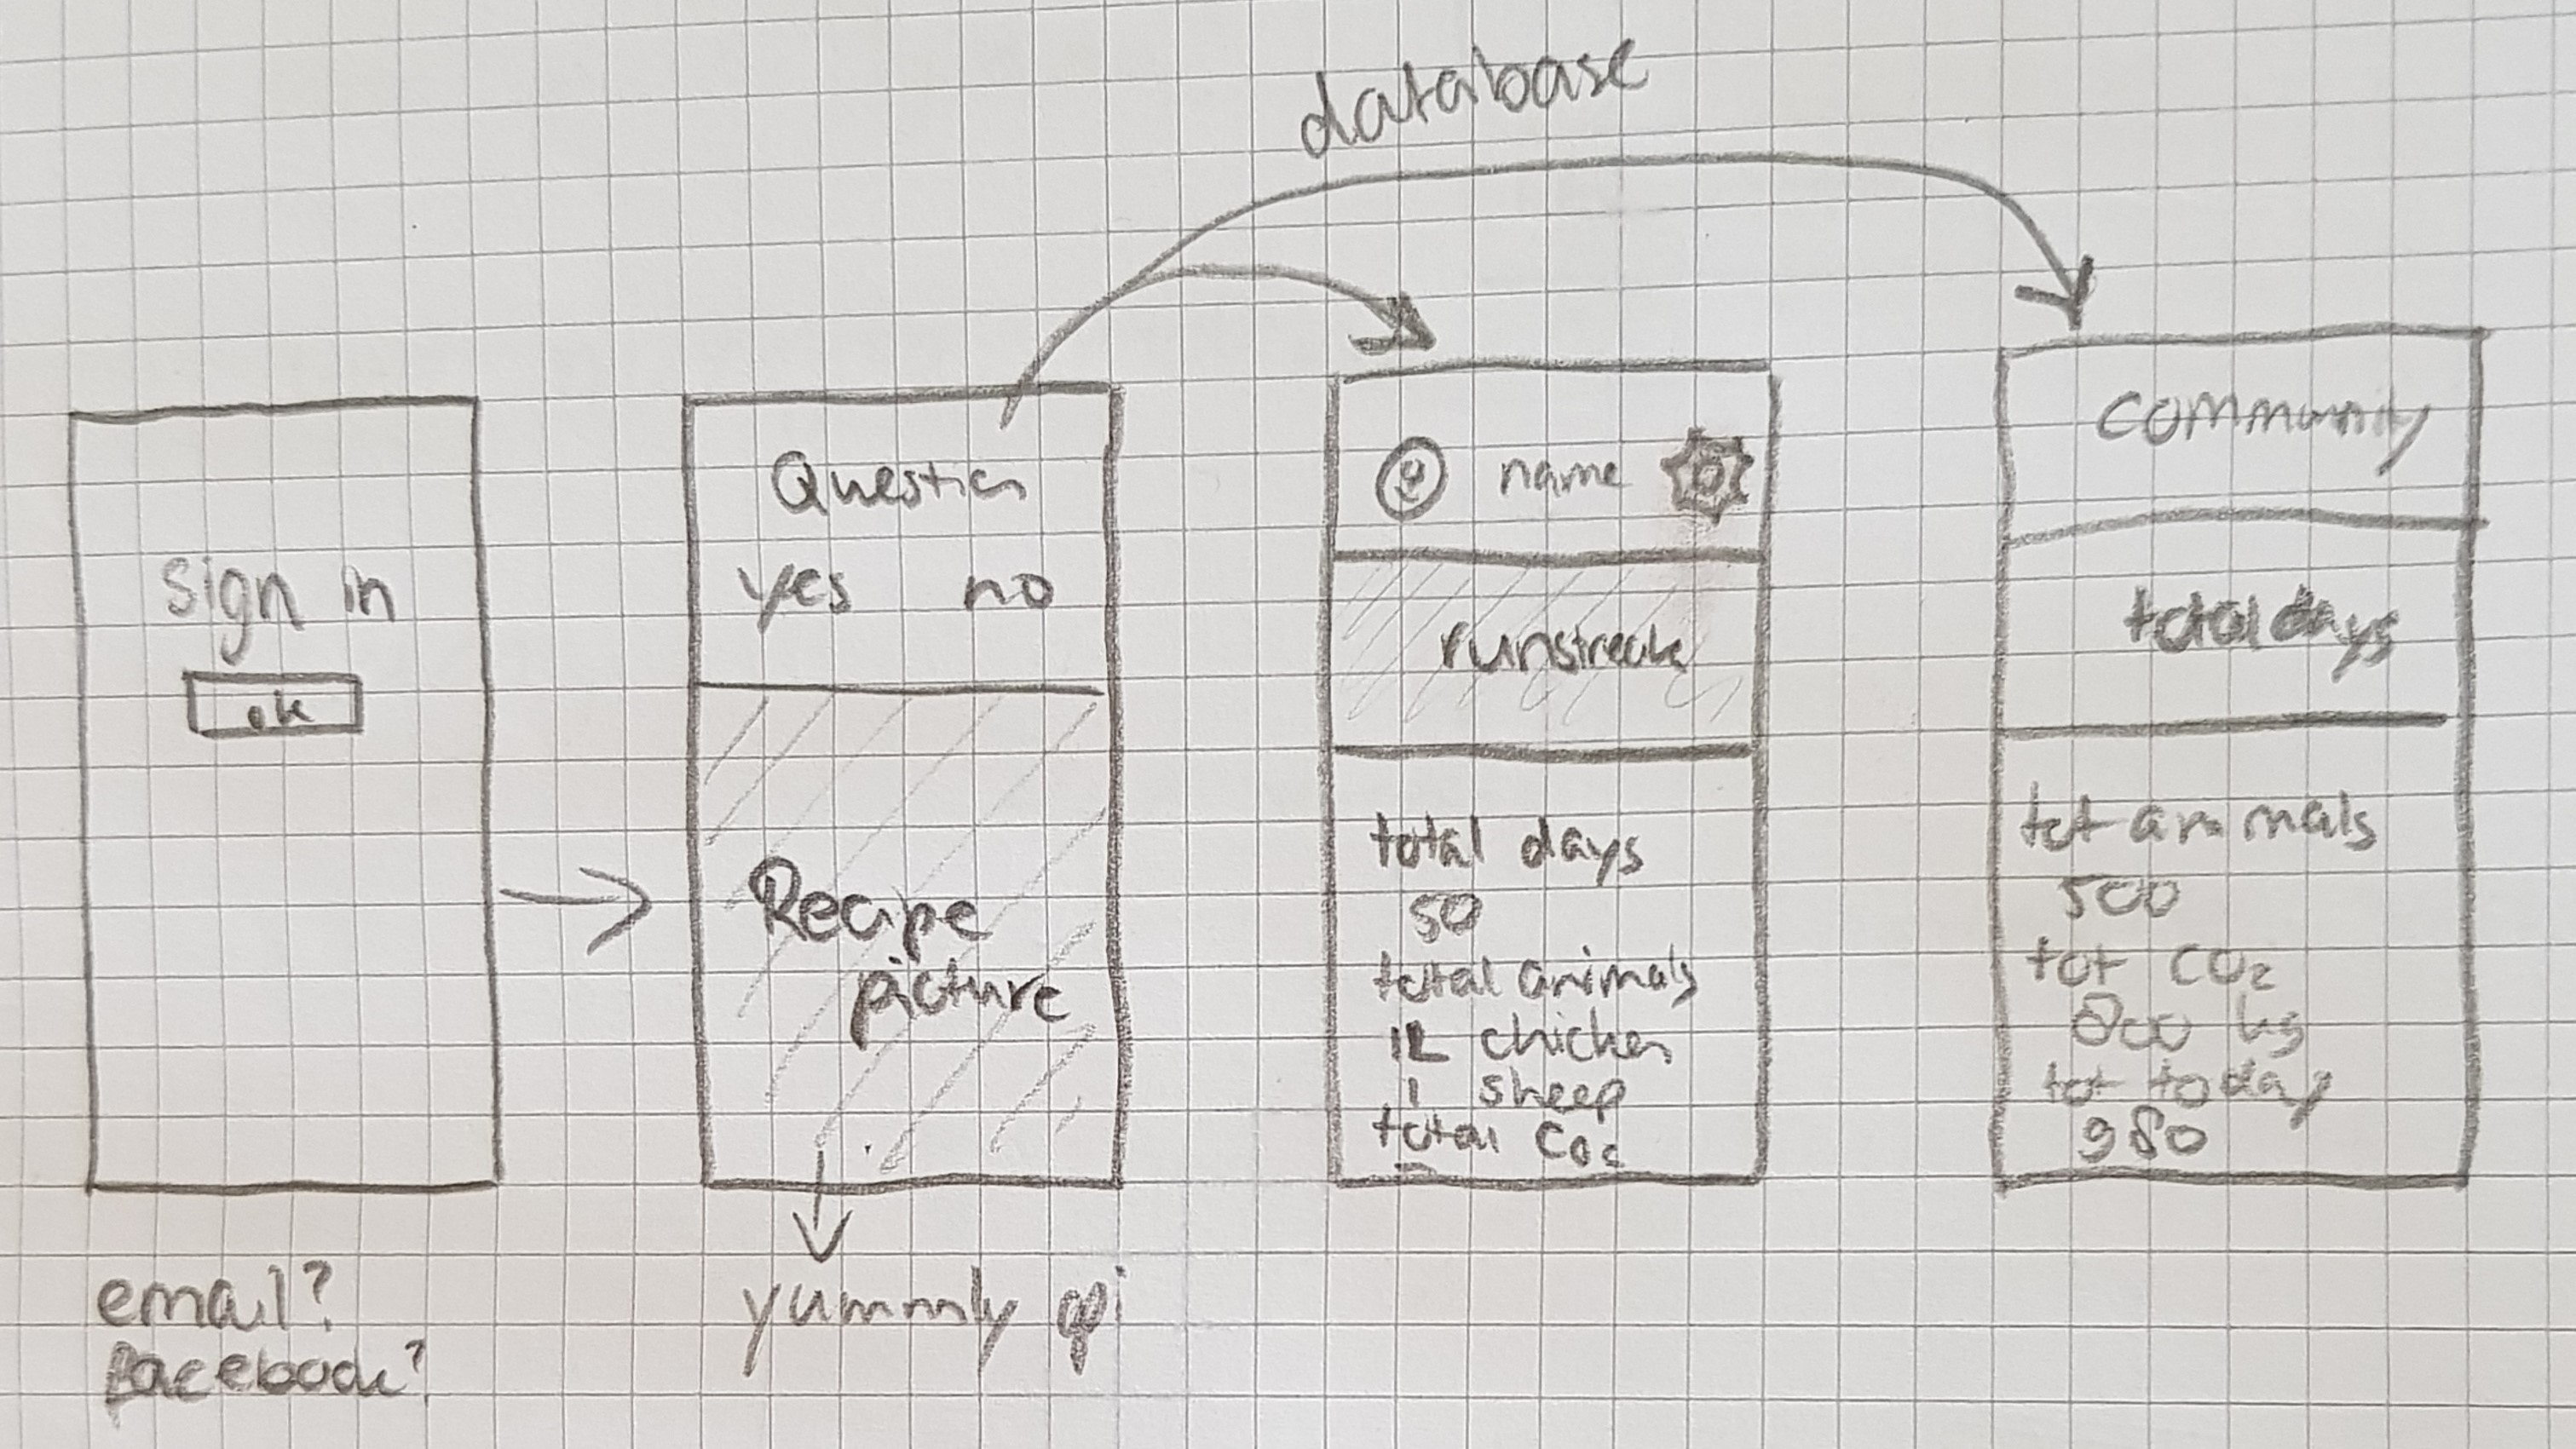 database
sign in
ok
email?
facebook?
Question
yes no
Recipe
picture
yummly api
name
runstreak
total days
50
total animals
12 chicken
1 sheep
total CO2
community
total days
tot animals
500
tot CO2
800 kg
tot today
980